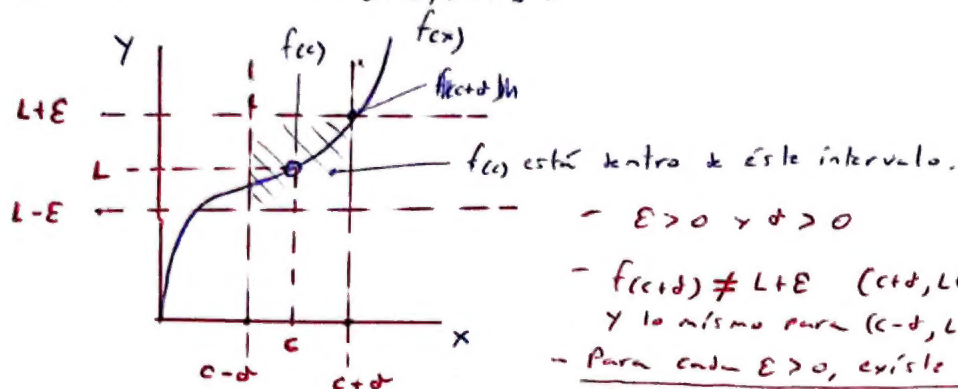 Y
f(c)
f(x)
L+ε
L
f(c) está dentro de éste intervalo.
L-ε
- ε>0 y d>0
- f(c+d) ≠ L+ε (c+d, L+
Y lo mismo para (c-d, L
- Para cada ε>0, existe
X
c-d
c
c+d